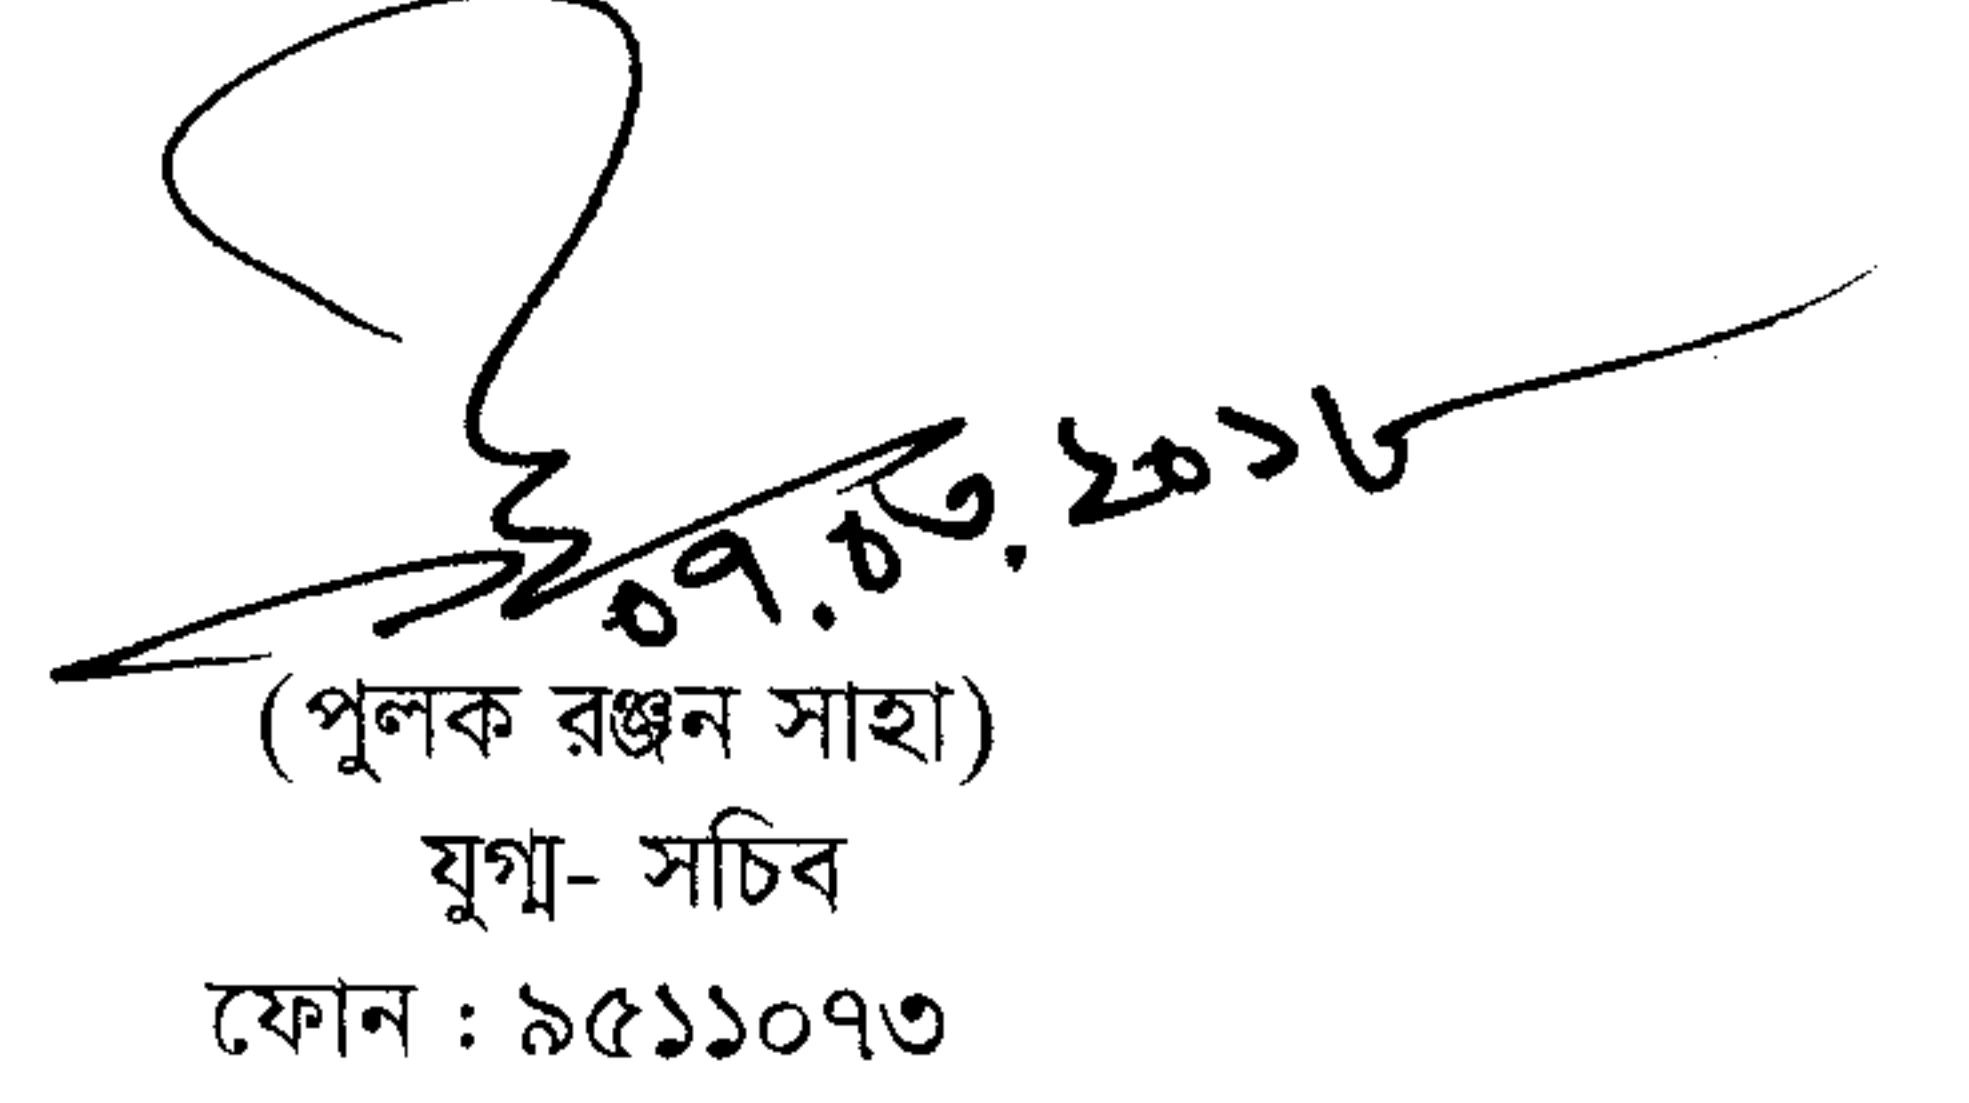 ০৭.০৩.২০১৮
(পুলক রঞ্জন সাহা)
যুগ্ম- সচিব
ফোন : ৯৫১১০৭৩